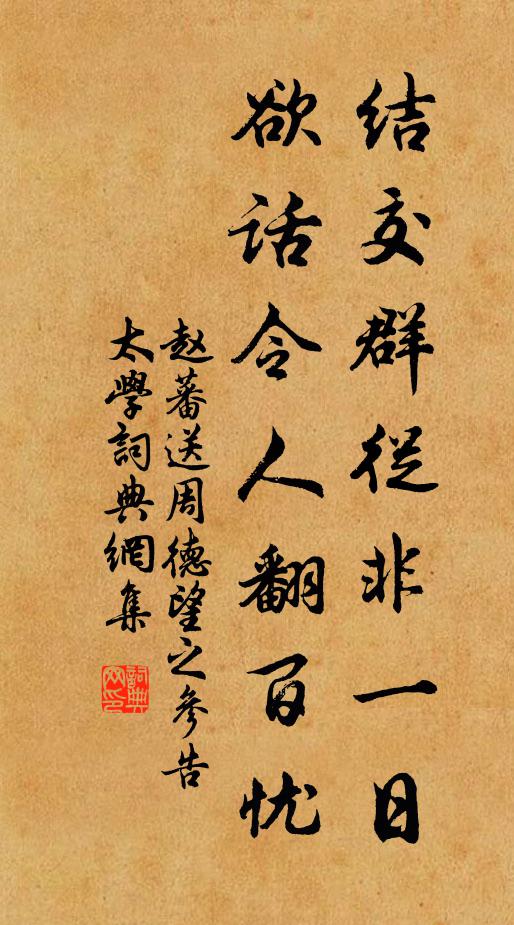 结交群從非一日
欲话令人翻百忧
赵蕃送周德望之參告
太學詞典網集
詞典
网印